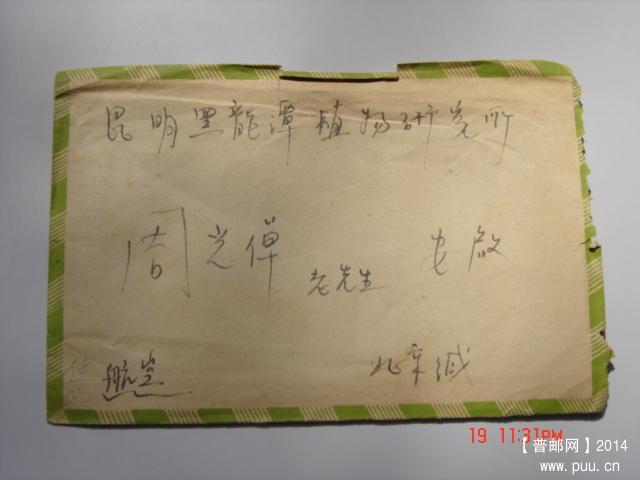 昆明黑龍潭植物研究所
周光倬 老先生 安啟
北京緘
航空
19 11:31PM
【普邮网】2014
www.puu.cn